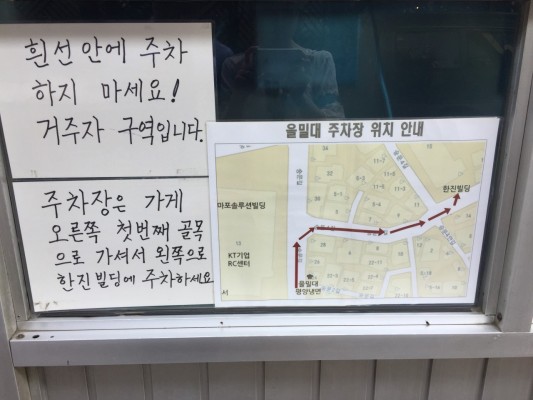 흰선 안에 주차
하지 마세요!
거주자 구역입니다.
주차장은 가게
오른쪽 첫번째 골목
으로 가셔서 왼쪽으로
한진빌딩에 주차하세요
을밀대 주차장 위치 안내
한진빌딩
마포솔루션빌딩
KT기업
RC센터
을밀대
평양냉면